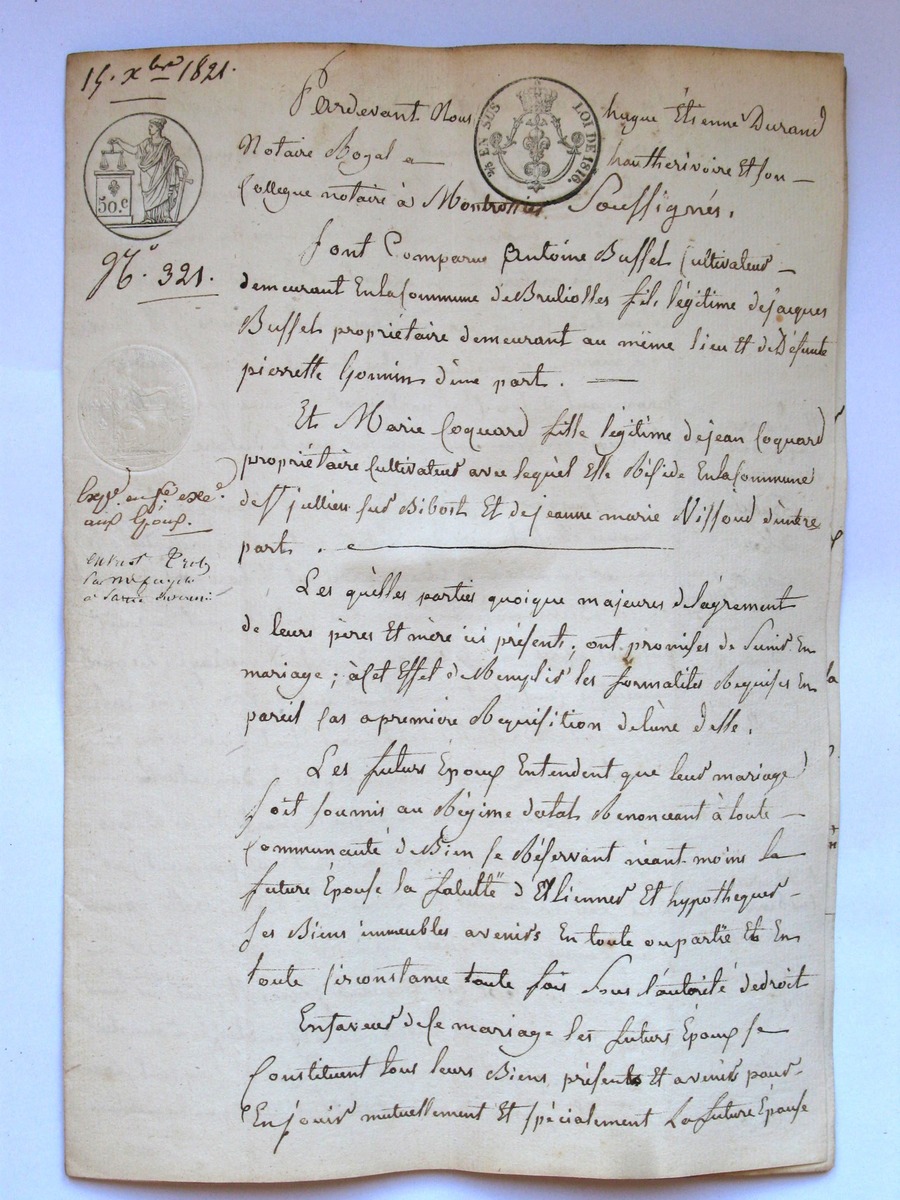 15. xbre 1821.
Pardevant Nous hugue Étienne Durand
Notaire Royal a hautherivoire Et son
Collegue notaire à Montrottier Soussignés.
50.c
1/10 EN SUS LOI DE 1816.
N.° 321.
Sont Comparue Antoine Bussel Cultivateur
demeurant En la Commune de Brulioles fils légitime de jacques
Bussel propriétaire demeurant au même lieu et de Défunte
pierrette Gonnin d'une part.
Et Marie Coquard fille légitime de jean Coquard
propriétaire Cultivateur avec lequel Elle Réside En la Commune
de St jullien sur Bibost Et de jeanne marie d'autre
part.
aux Époux.
Les quelles parties quoique majeures de l'agrement
de leurs pères Et mère ici présent, ont promises de S'unir En
mariage; à Cet Effet de Remplir les formalités Requises En
pareil Cas a premiere Requisition de l'une d'elle.
Les futurs Époux Entendent que leur mariage
Soit soumis au Régime dotal Renonceant à toute
Communauté de Bien se Réservant néant moins la
future Épouse la faculté d'Alienner Et hypothequer
ses Biens immeubles avenirs En toute ou partie Et En
toute Circonstance toute fois Sous l'autorité de droit
En faveur de Ce mariage les futurs Époux se
Constituent tous leurs Biens présents Et avenir pour
En jouir mutuellement Et spécialement La future Épouse